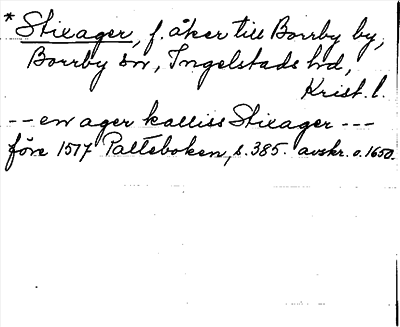 * Stixager, f. åker till Borrby by,
Borrby sn, Ingelstads hd,
Krist. l.
-- en ager kalliss Stixager ---
före 1517 Palteboken, s. 385. avskr. o. 1650.